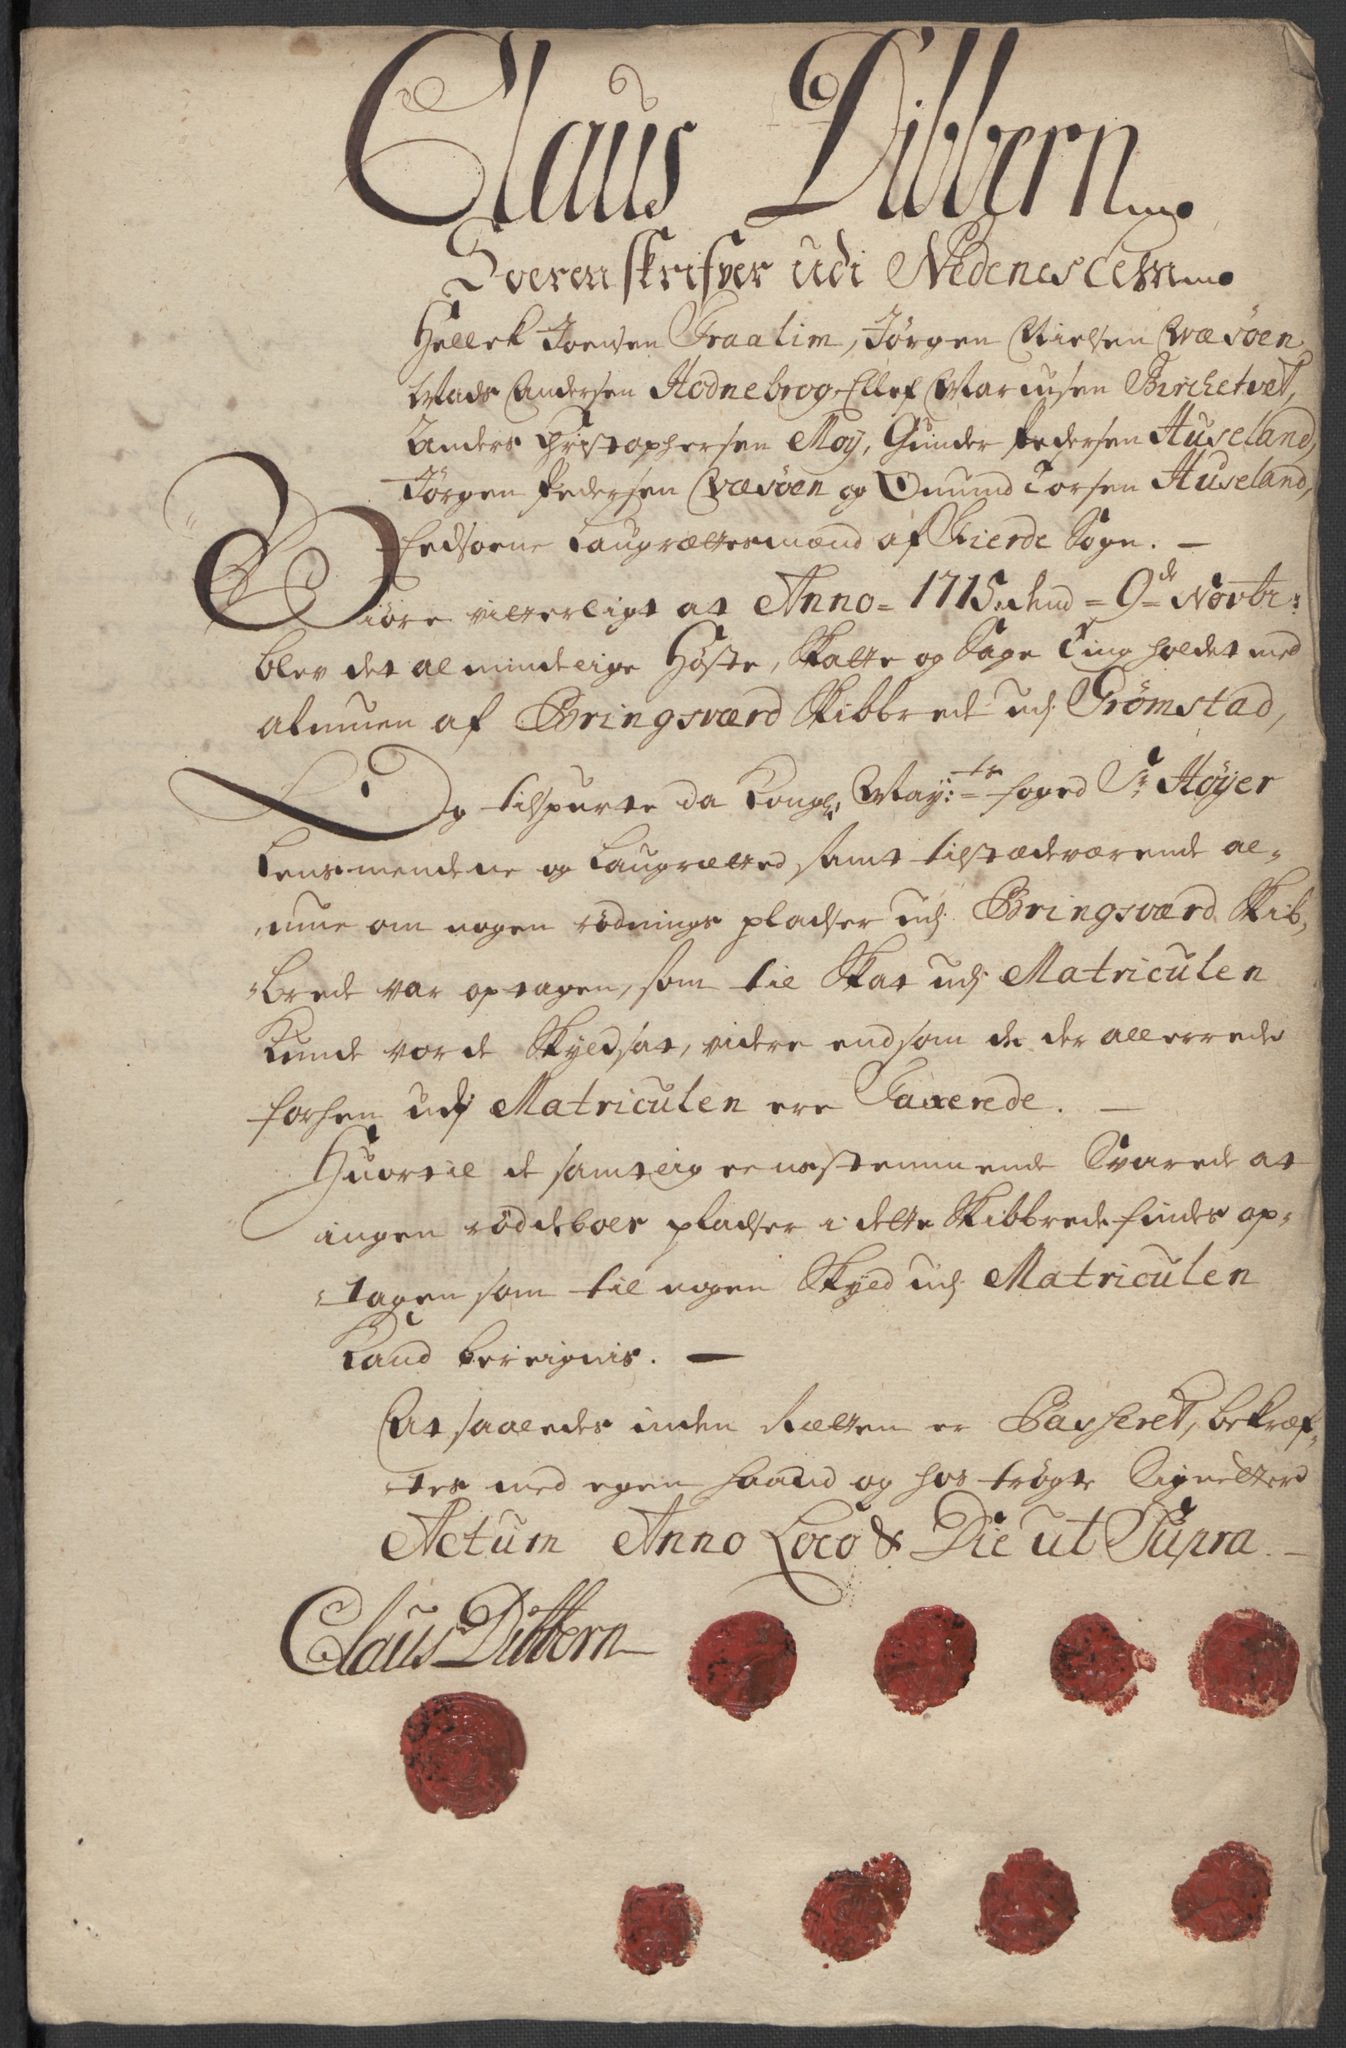 Claus Dibbern
Sorenskrifver udi Nedenes Lehn.
Hellek Joensen Fraalim, Jørgen Nielsen Qvæsøen
Mads Andersen Hodnebrog, Ellef Marcusen Birchetvet,
Anders Christophersen Moy, Gunder Pedersen Auseland,
Jørgen Pedersen Qvæsøen og Omund Torsen Auseland,
Eedsorne Laugrættesmænd af Fierde Sogn. —
Giøre vitterligt at Anno = 1715. dend = 9de Novbr:
blev det almindelige Høste, Skatte og Sage Ting holdet med
almuen af Bringsværd Skibbrede udj Grømstad,
Og tilspurte da Kongl. May:ts foged Sr Høyer
Lensmendene og Laugretted samt tilstædeværende al-
mue om nogen rødnings pladser udj Bringsværd Skib-
brede var optagen, som til Skat udj Matriculen
Kunde vorde Skyldsat, videre end som de der allerrede
forhen udj Matriculen ere Taxerede. —
Huortil de samtlig eenstemmende Svarede at
ingen røddeboes pladser i dette Skibbrede findes op-
tagen som til nogen Skyld udj Matriculen
Kand bereignis. —
At saaledes inden Rætten er Passeret, bekræf-
tes med egen haand og hos trøgte Signetterd
Actum Anno Loco & Die ut Supra. —
Claus Dibbern